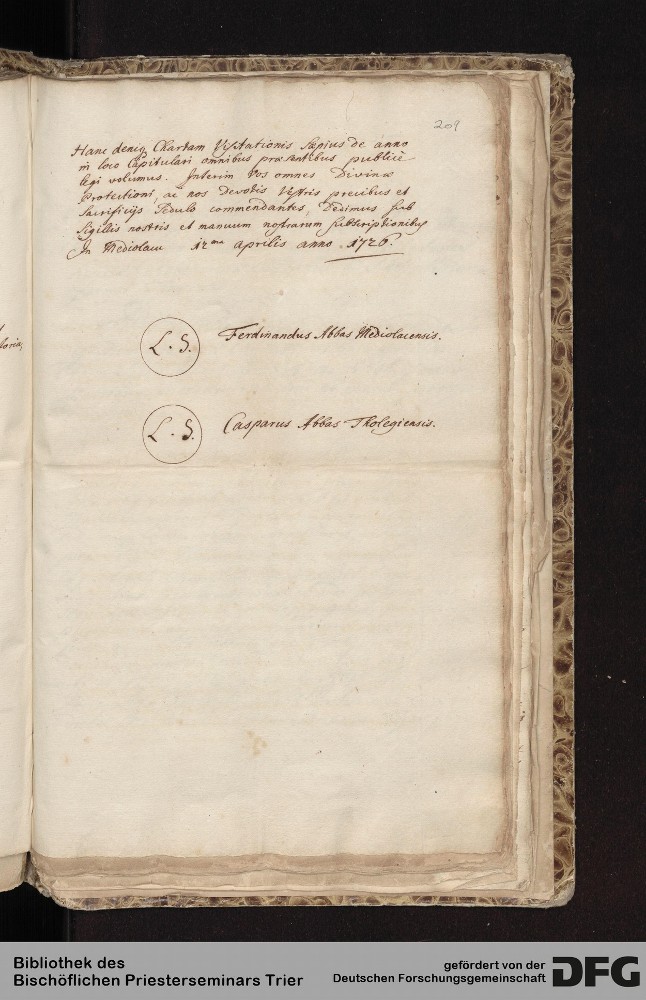 209
Hanc deniq Chartam Visitationis Sæpius de anno
in loco Capitulari omnibus præsentibus publicè
legi volumus. Interim Vos omnes Divinæ
Protectioni, ac nos Devotis Vestris precibus et
Sacrificijs Sedulo commendantes, Dedimus sub
Sigillis nostris et manuum nostrarum subscriptionibus
In Mediolacu 12ma aprilis anno 1726.
L. S. Ferdinandus Abbas Mediolacensis.
L. S. Casparus Abbas Tholegiensis.
Bibliothek des
Bischöflichen Priesterseminars Trier
gefördert von der
Deutschen Forschungsgemeinschaft DFG